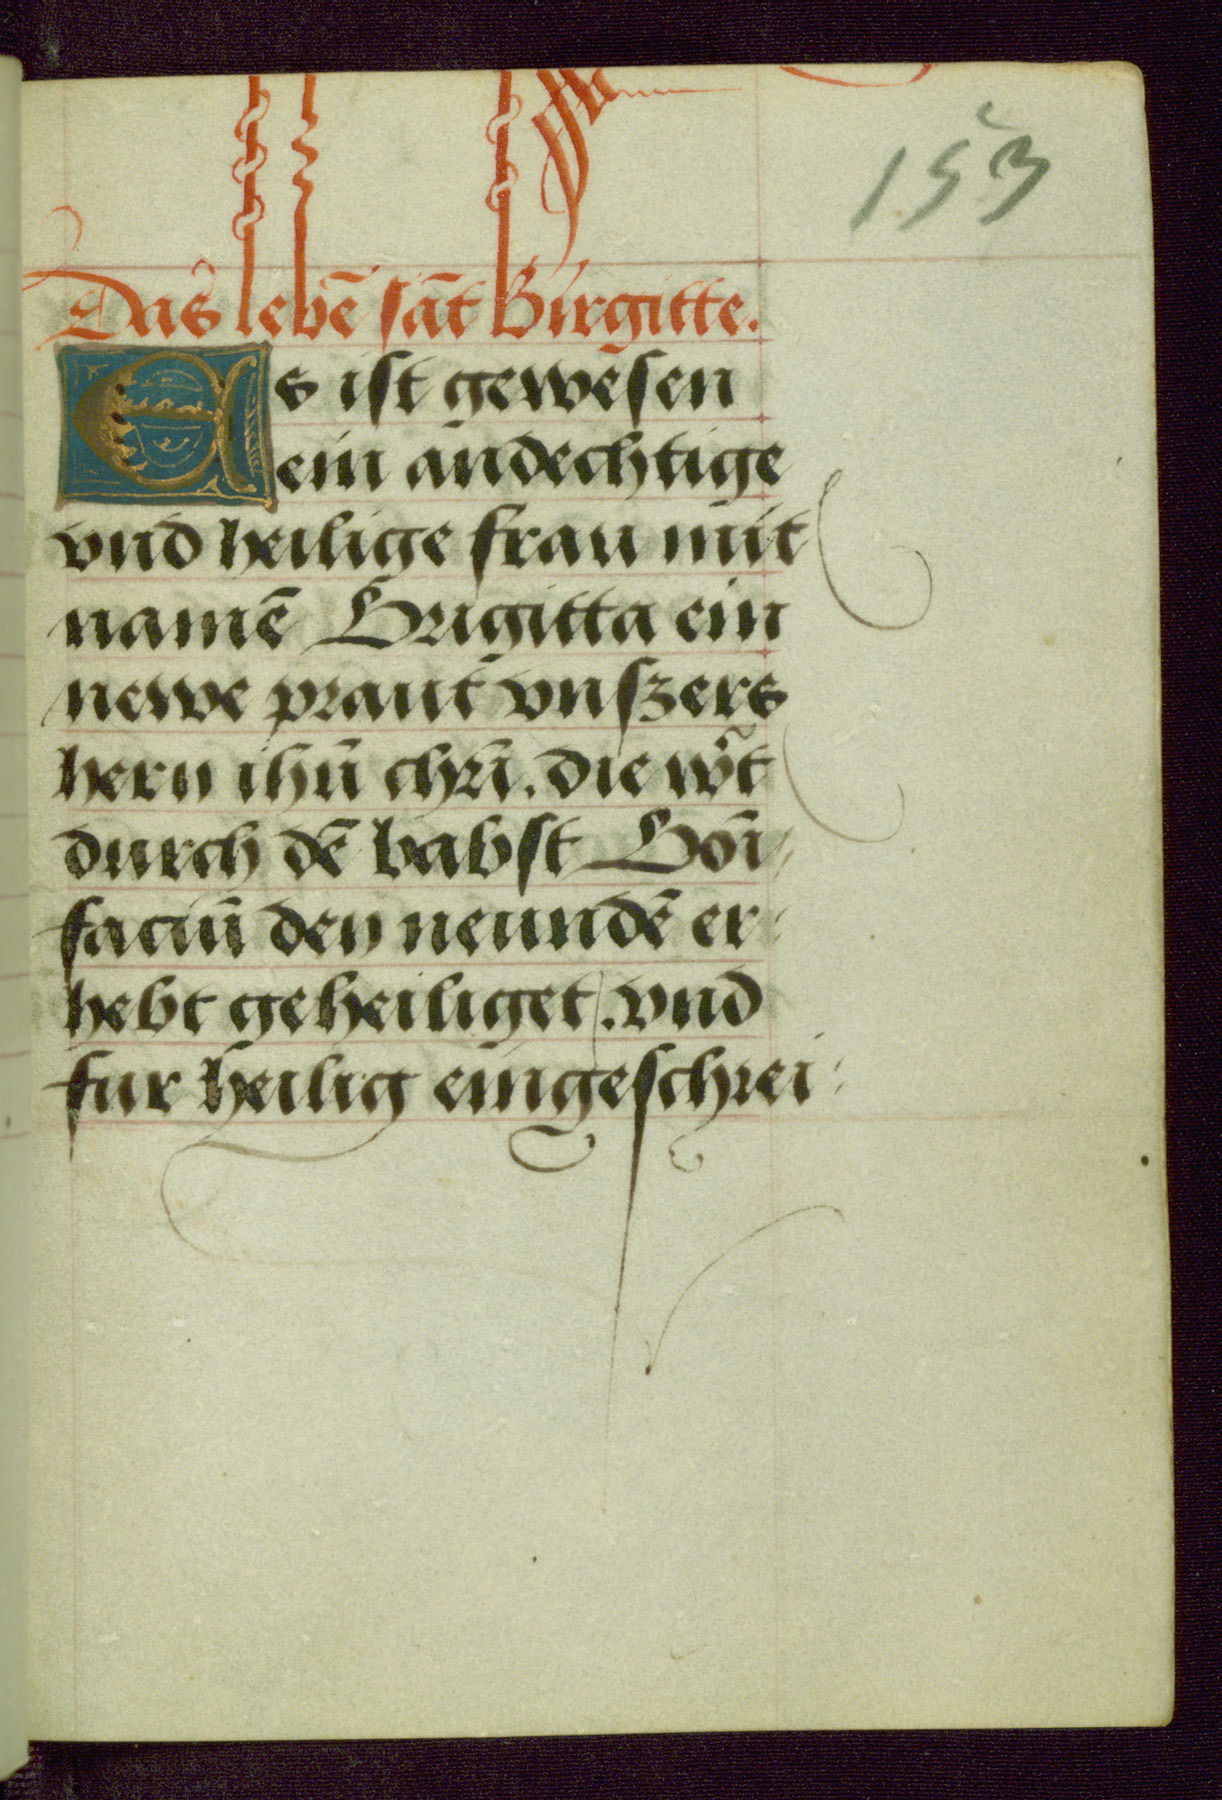 153
Das lebē sāt Birgitte.
Es ist gewesen
ein andechtige
vnd heilige frau mit
namē Brigitta ein
newe praut vnszers
hern ihū chri̅. die w̃t
durch dē babst Boni̅
faciū den neundē er
hebt geheiliget. vnd
fur heilig eingeschrei